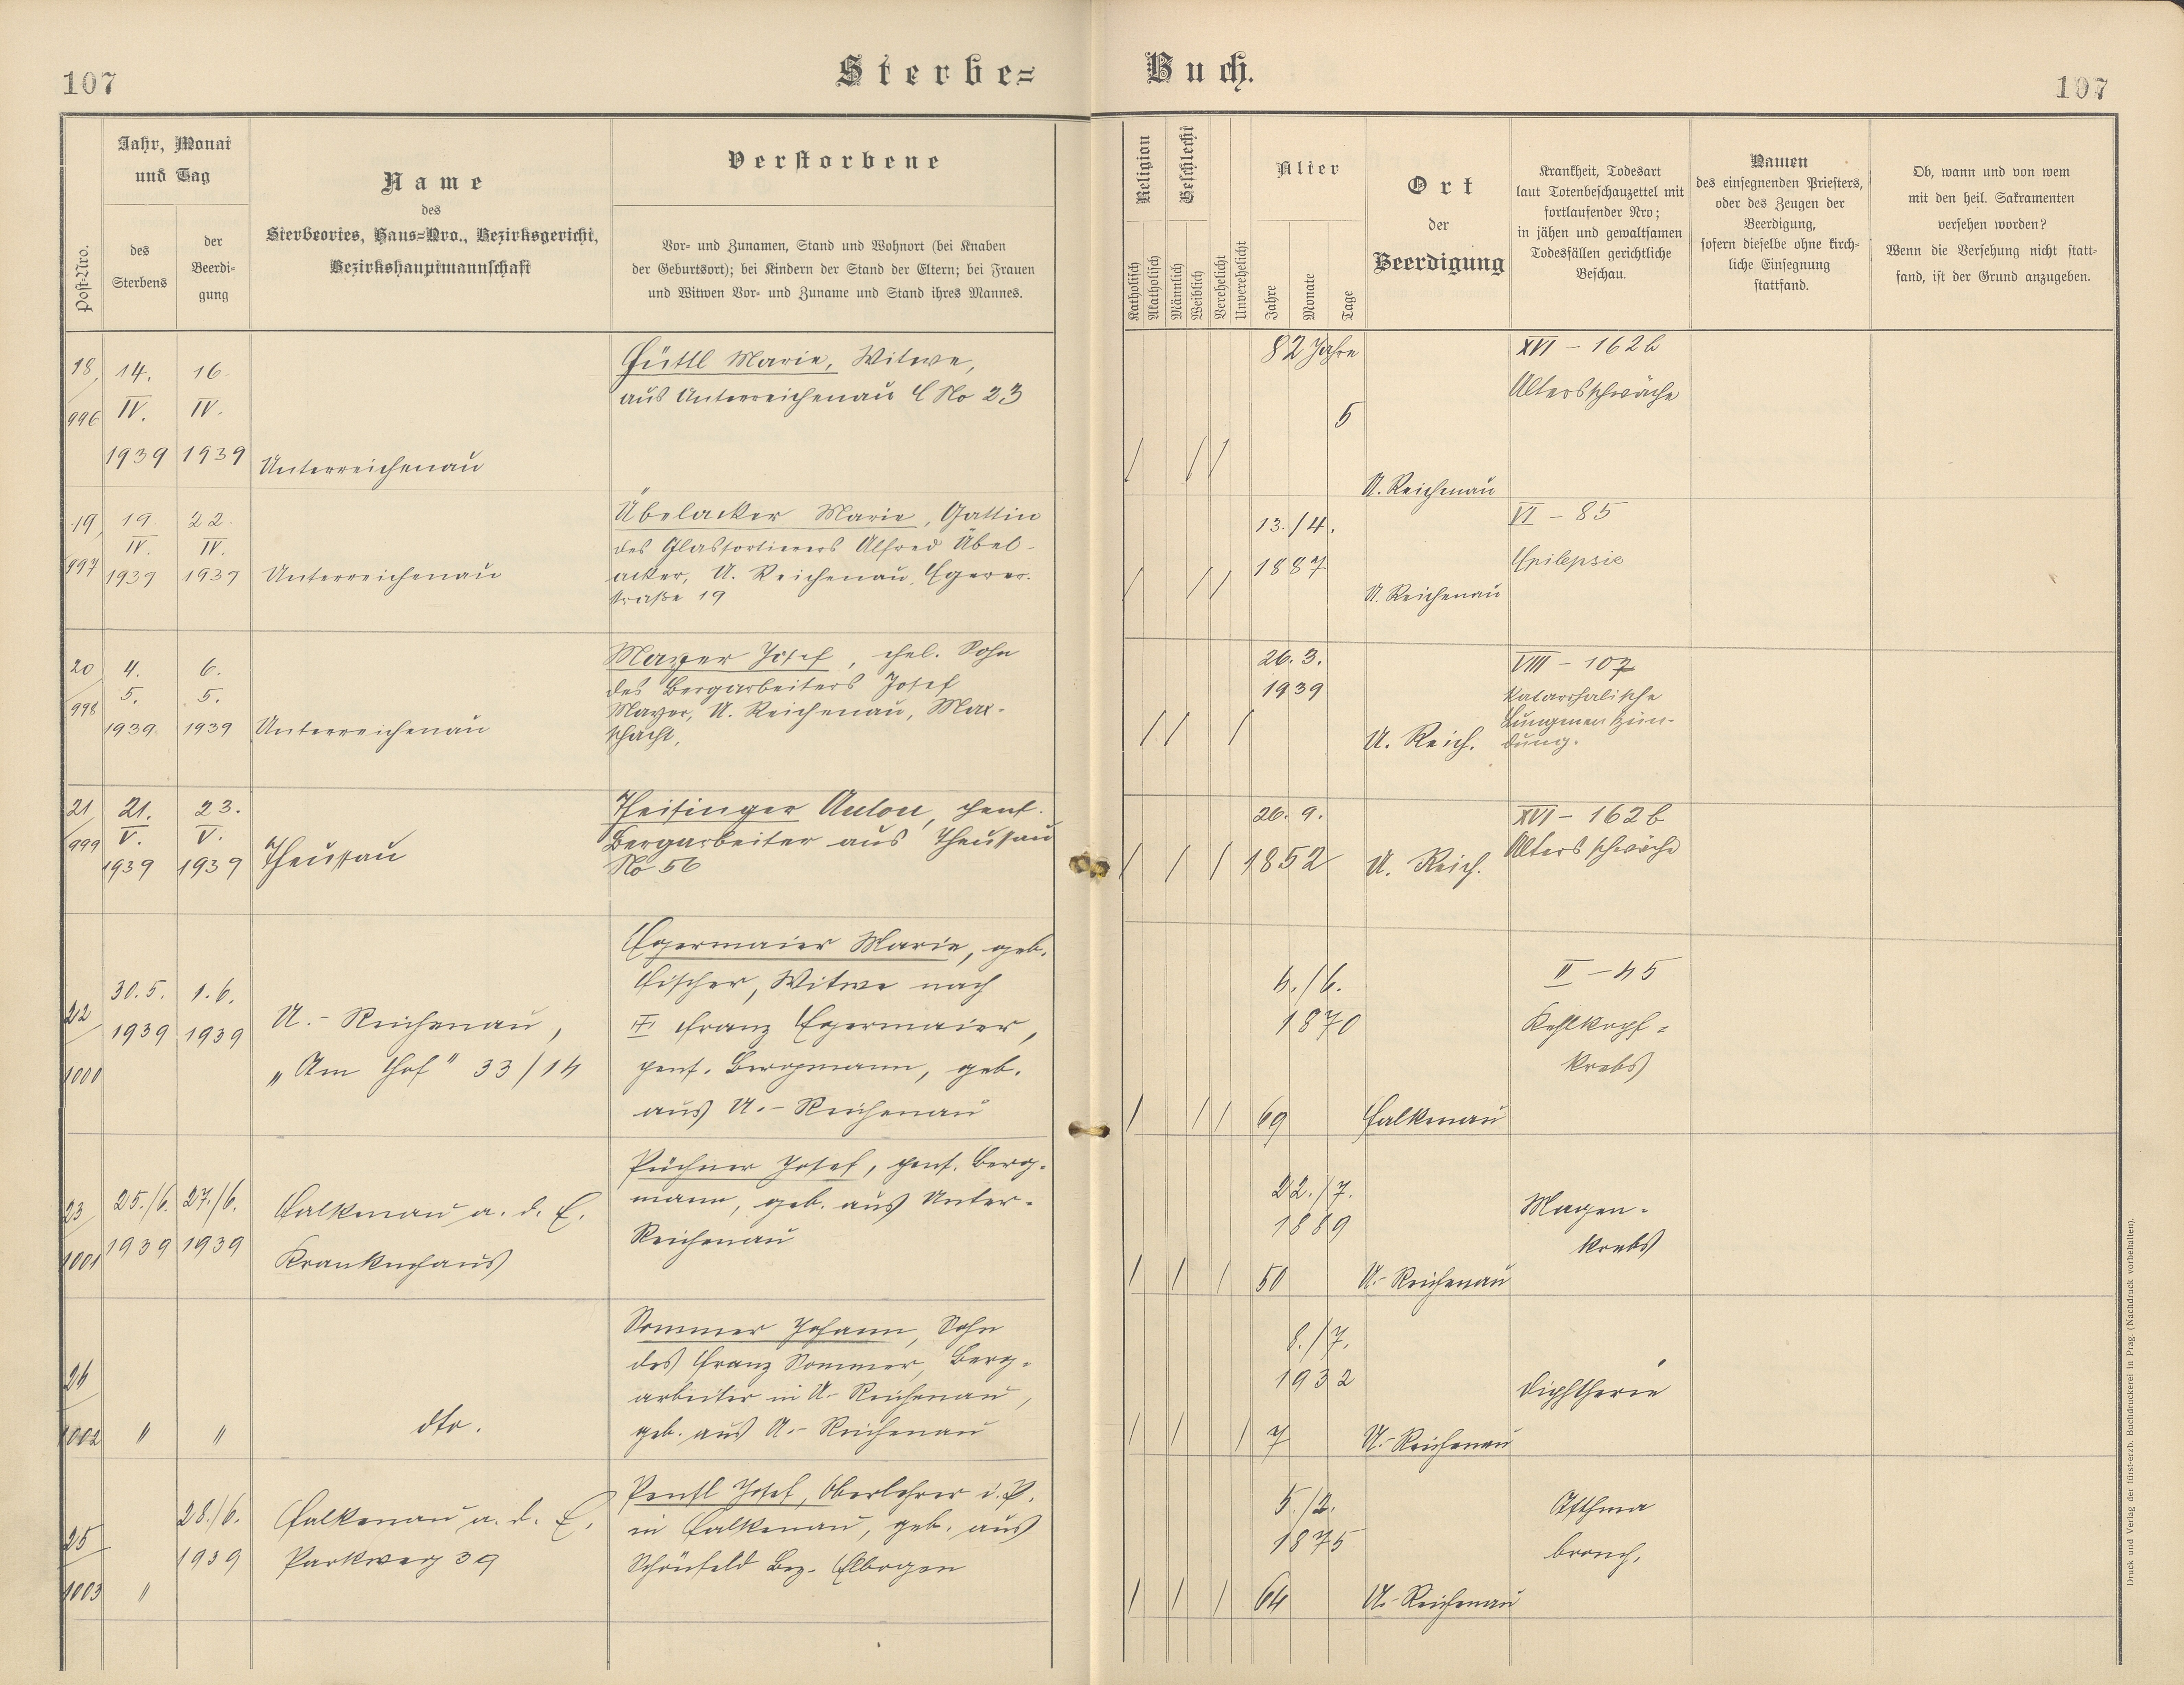 107
Sterbe=
Buch.
107
Post-Nro.
Jahr, Monat
und Tag
des
Sterbens
der
Beerdi-
gung
Name
des
Sterbeortes, Haus=Nro., Bezirksgericht,
Bezirkshauptmannschaft
Verstorbene
Vor- und Zunamen, Stand und Wohnort (bei Knaben
der Geburtsort); bei Kindern der Stand der Eltern; bei Frauen
und Witwen Vor- und Zuname und Stand ihres Mannes.
Religion
Katholisch
Akatholisch
Geschlecht
Männlich
Weiblich
Verehelicht
Unverehelicht
Alter
Jahre
Monate
Tage
Ort
der
Beerdigung
Krankheit, Todesart
laut Totenbeschauzettel mit
fortlaufender Nro;
in jähen und gewaltsamen
Todesfällen gerichtliche
Beschau.
Namen
des einsegnenden Priesters,
oder des Zeugen der
Beerdigung,
sofern dieselbe ohne kirch-
liche Einsegnung
stattfand.
Ob, wann und von wem
mit den heil. Sakramenten
versehen worden?
Wenn die Versehung nicht statt-
fand, ist der Grund anzugeben.
18/996
14.
IV.
1939
16.
IV.
1939
Unterreichenau
Hüttl Marie, Witwe,
aus Unterreichenau CNo 23
/ / /
82 Jahre
5
U. Reichenau
XVI - 162b
Altersschwäche
19/997
19.
IV.
1939
22.
IV.
1939
Unterreichenau
Übelacker Marie, Gattin
des Glassortierers Alfred Übel-
acker, U. Reichenau, Egerer-
straße 19
/ / /
13./4.
1887
U. Reichenau
VI - 85
Epilepsie
20/998
4.
5.
1939
6.
5.
1939
Unterreichenau
Mayer Josef, ehel. Sohn
des Bergarbeiters Josef
Mayer, U. Reichenau, Mar-
schacht,
/ / /
26. 3.
1939
U. Reich.
VIII - 107
Katarrhalische
Lungenentzün-
dung.
21/999
21.
V.
1939
23.
V.
1939
Theussau
Theisinger Anton, pens.
Bergarbeiter aus Theussau
No 56
/ / /
26. 9.
1852
U. Reich.
XVI - 162b
Altersschwäche
22/1000
30.5.
1939
1.6.
1939
U.- Reichenau,
„Am Hof" 33/14
Egermaier Marie, geb.
Fischer, Witwe nach
Franz Egermaier,
pens. Bergmann, geb.
aus U.- Reichenau
/ / /
4./6.
1870
69
Falkenau
II - 45
Kehlkopf=
krebs
23/1001
25./6.
1939
27./6.
1939
Falkenau a. d. E.
Krankenhaus
Püchner Josef, pens. Berg-
mann, geb. aus Unter-
Reichenau
/ / /
22./7.
1889
50
U.- Reichenau
Magen-
krebs
24/1002
"
"
dto.
Sommer Johann, Sohn
des Franz Sommer, Berg-
arbeiter in U- Reichenau,
geb. aus U.- Reichenau
/ / /
8./7.
1932
7
U.- Reichenau
Diphtherie
25/1003
"
28./6.
1939
Falkenau a. d. E.
Parkweg 39
Josef, Oberlehrer i. P.
in Falkenau, geb. aus
Schönfeld Bez. Elbogen
/ / /
5./2.
1875
64
U.- Reichenau
Asthma
bronch.
Druck und Verlag der fürst-erzb. Buchdruckerei in Prag. (Nachdruck vorbehalten).